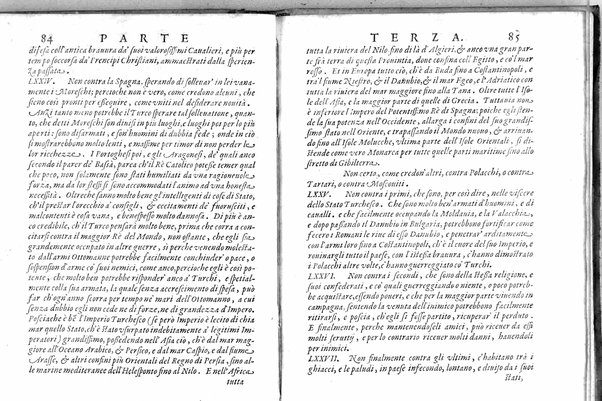 84 PARTE
difesa coll'antica brauura da' suoi valorosissimi Caualieri, e più per
tempo soccorsa da' Prencipi Christiani, ammaestrati dalla sperien-
za passata.
LXXIV. Non contra la Spagna, sperando di solleuar in lei vana-
mente i Moreschi; percioche non è vero, come credono alcuni, che
sieno così pronti per eseguire, come vniti nel desiderare nouità.
Anzi tanto meno potrebbe il Turco sperar tal solleuatione, quan-
to, che detti Moreschi son diuisi in più luoghi, e luoghi poi per lo più
aperti: sono disarmati, e son'huomini di dubbia fede; onde in ciò
si mostrarebbono molto lenti, e massime per timor di non perder le
lor ricchezze. I Portoghesi poi, e gli Aragonesi, de' quali anco
secondo il parer d'Bassà, parea ch'il Rè Catolico potesse temer qual
che poco, non solamente sono stati humiliati da vna ragioneuole
forza, ma da lor stessi si sono accommodati l'animo ad vna honesta
necessità. Oltreche sanno molto bene gl'intelligenti di cose di Stato,
ch'il prestar l'orecchio a' consigli, & eccitamenti de' fuorusciti, e
malcontenti è cosa vana, e benespesso molto dannosa. Di più è an-
co credibile, ch'il Turco penserà molto bene, prima che corra a con-
citarsi contro il maggior Rè del Mondo, non ostante, che egli sia
grandemente occupato in altre guerre, si perche venendo molesta-
to dall'armi Ottomanne potrebbe facilmente conchiuder'o pace, o
sospension d'arme co' suoi nemici, come anco, percioche egli è così po-
tente, che molto ben potrebbe risponder' anco a' Turchi, e special-
mente colla sua armata, la quale senza accrescimento di spesa, può
far ch'ogni anno scorra per tempo ne' mari dell'Ottomano, a cui
senza dubbio egli non cede ne di forze, ne di grandezza d'Impero.
Posciache s'è l'Imperio Turchesco (se però Imperio è lecito di chia
mar quello Stato, ch'è stato vsurpato indebitamente a' legitimi Im-
peratori) grandissimo, possedendo nell'Asia ciò, ch'è dal mar mag-
giore all'Oceano Arabico, & Persico, e dal mar Caspio, e dal fiume
Arasse, & altri confini più Orientali del Regno di Persia, sino al-
le marine mediteranee dell'Helesponto sino al Nilo. E nell'Africa
tutta
TERZA. 85
tutta la riuiera del Nilo sino di là d'Algieri, & anco vna gran par-
te fra terra di questa Prouintia, doue confina coll'Egitto, e co'l mar
rosso. Et in Europa tutto ciò, ch'è da Buda sino a Costantinopoli, e
tra il fiume Neester, & il Danubio, & il mar Egeo, e l'Adriatico con
tutta la riuiera del mar maggiore sino alla Tana. Oltre tutte l'Iso
le dell'Asia, e la maggior parte di quelle di Grecia. Tuttauia non
è inferiore l'Imperio del Potentissimo Rè di Spagna; poiche egli sten-
de la sua potenza nell'Occidente, allarga i confini del suo grandis-
simo Stato nell'Oriente, e trapassando il Mondo nuouo, & arriuan-
do sino all'Isole Molucche, vltima parte dell'Isole Orientali, si di-
stende come vero Monarca per tutte quelle parti marittime sino allo
stretto di Gibilterra.
Non certo, come credon' altri, contro Polacchi, o contro
Tartari, o contro Moscouiti.
LXXV. Non contra i primi, che sono, per così dire, nelle viscere
dello Stato Turchesco. Che sono molto ben'armati d'huomini, e di
caualli. e che facilmente ocupando la Moldauia, e la Valacchia,
e dopo passando il Danubio in Bulgaria, potrebbono fortificar come
fecero i Romani le riue di esso Danubio, e penetrar' arditamente
con l'armi loro sino a Costantinopoli, ch'è il cuore del suo Imperio, e
rouinargli tutto il paese, con l'istessa brauura, c'hanno dimostrato
i Polacchi altre volte, c'hanno guerreggiato co' Turchi.
LXXVI. Non contra i secondi, che sono della stessa religione, e
suoi confederati, e co' quali guerreggiando o niente, o poco potreb-
be acquistare, essendo poueri, e che per la maggior parte viuendo in
campagna, sentendo la venuta dell'inimico potrebbono facilmente
ritirarsi, e poscia, ch'egli si fosse partito, ricuperar' il perduto.
E finalmente, perche mantenendoseli amici, può riceuer da essi
molti seruity, e per lo contrario riceuer molti danni, hauendoli
per inimici.
LXXVII. Non finalmente contra gli vltimi, c'habitano trà i
ghiacci, e le paludi, in paese infecondo, lontano, e diuiso da i suoi
Stati,